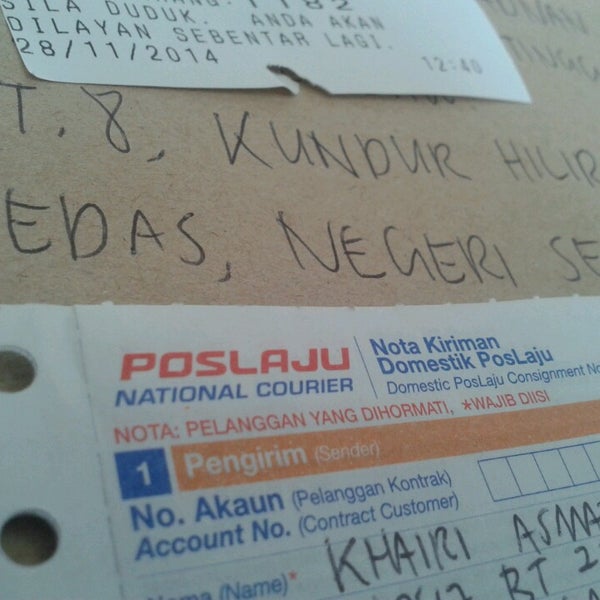 1182
SILA DUDUK. ANDA AKAN
DILAYAN SEBENTAR LAGI.
28/11/2014 12:40
T. 8, KUNDUR HILIR
EDAS, NEGERI SE
POSLAJU
NATIONAL COURIER
Nota Kiriman
Domestik PosLaju
Domestic PosLaju Consignment No
NOTA: PELANGGAN YANG DIHORMATI, *WAJIB DIISI
1 Pengirim (Sender)
No. Akaun (Pelanggan Kontrak)
Account No. (Contract Customer)
Nama (Name)* KHAIRI ASMA
BT 2